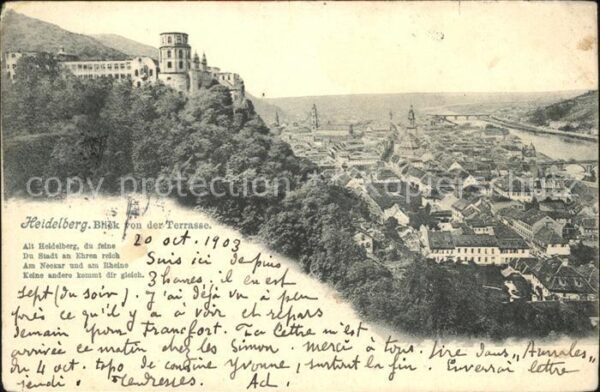 Heidelberg. Blick von der Terrasse.
Alt Heidelberg, du feine
Du Stadt an Ehren reich
Am Neckar und am Rheine
Keine andere kommt dir gleich.
20 oct. 1903
Suis ici depuis
3 heures, il en est
sept (du soir). J'ai déjà vu à peu
près ce qu'il y a à voir et repars
demain pour Francfort. Ta lettre m'est
arrivée ce matin chez les Simon. merci à tous. Lire dans "Annales"
du 4 oct. de cousine Yvonne, surtout la fin. Enverrai lettre
jeudi. Tendresses. Ad.
www.ansichtskartenversand.com